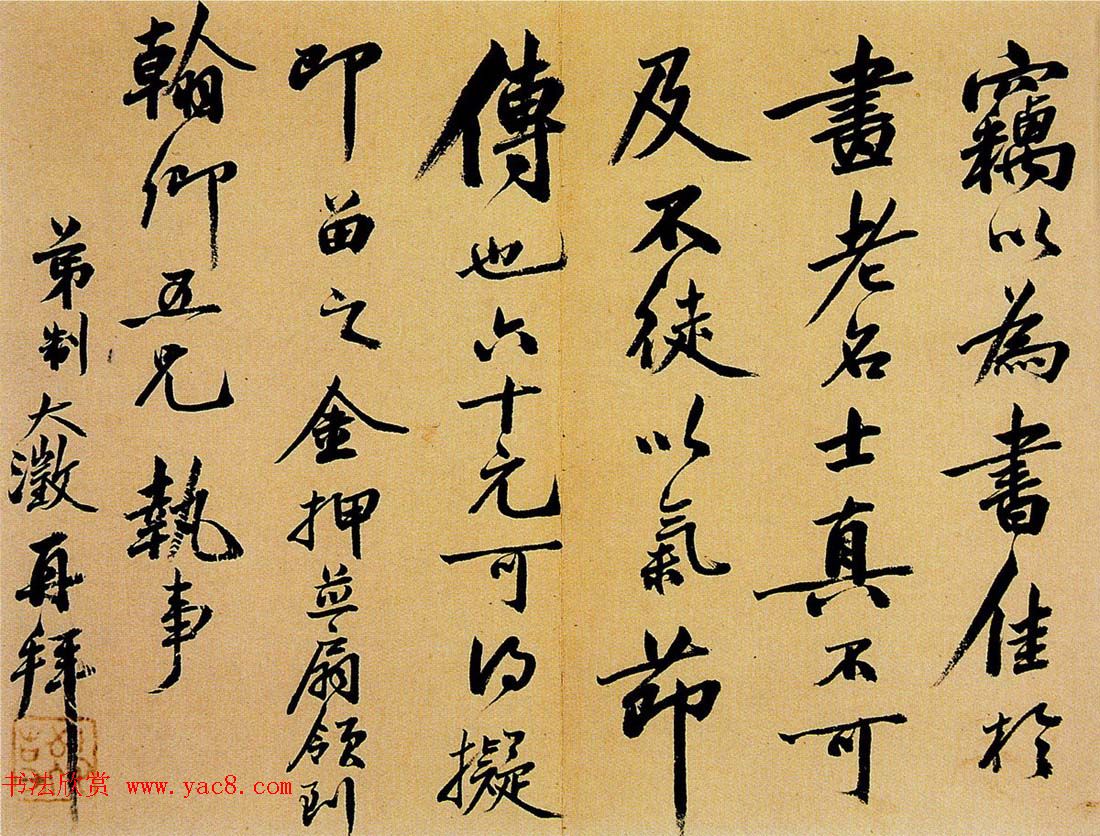 竊以為書佳於
畫老名士真不可
及不徒以氣節
傳也六十元可得擬
即留之金押並扇領到
翰卿五兄執事
弟制大澂再拜
书法欣赏 www.yac8.com